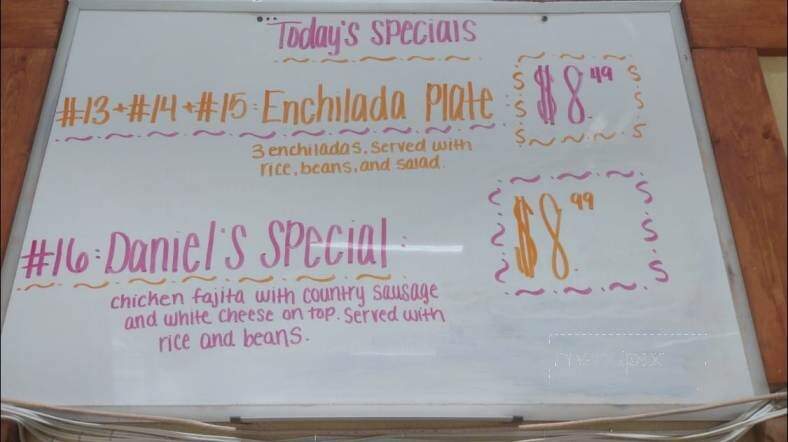 Today's Specials
#13+#14+#15: Enchilada Plate
$8.49
3 enchiladas, served with
rice, beans, and salad.
#16: Daniel's Special:
$8.99
chicken fajita with country sausage
and white cheese on top. Served with
rice and beans.